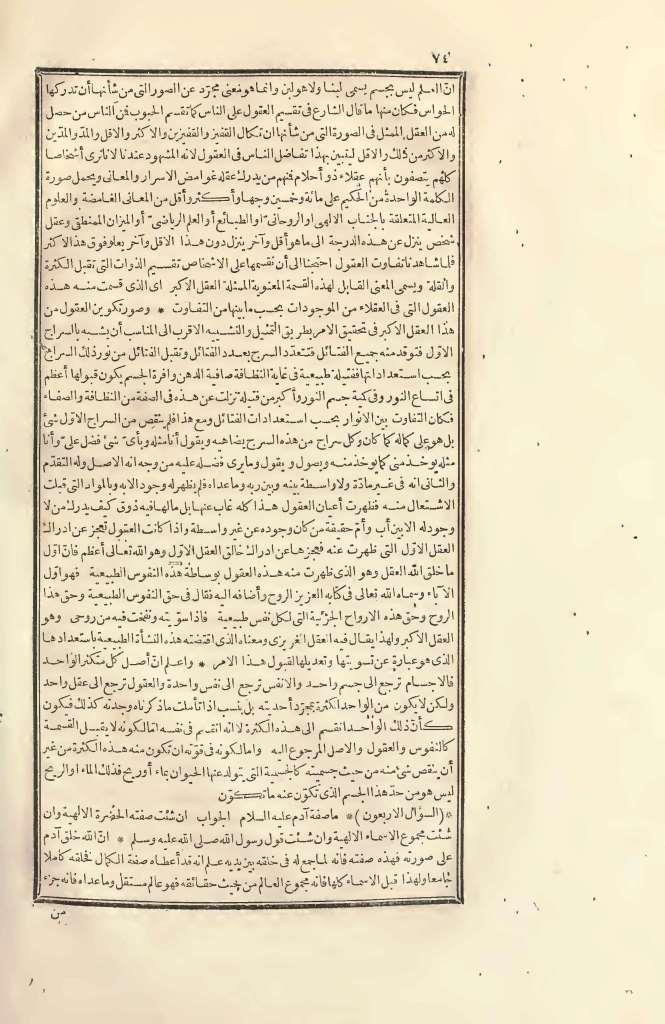 ٧٤
ان العلم ليس بجسم يسمى لبنا ولا هو لبن وانما هو معنى مجرّد عن الصور التى من شأنها أن تدركها
الحواس فكان منها ما قال الشارع فى تقسيم العقول على الناس كما تقسيم الحبوب فمن الناس من حصل
له من العقل الممثل فى الصورة التى من شأنها ان تكال القفيز والقفيزين والاكثر والاقل والمدّ والمدّين
والاكثر من ذلك والاقل ليتبين بهذا تفاضل الناس فى العقول لانه المشهود عندنا لانا نرى أشخاصا
كلهم يتصفون بأنهم عقلاء ذو أحلام فمنهم من يدرك عقله غوامض الاسرار والمعانى ويحمل صورة
الكلمة الواحدة من الحكيم على مائة وخمسين وجها وأكثر وأقل من المعانى الغامضة والعلوم
العالية المتعلقة بالجناب الالهى او الروحانى او الطبائع أو العلم الرياضىّ أو الميزان المنطقى وعقل
شخص ينزل عن هذه الدرجة الى ما هو أقل وآخر ينزل دون هذا الاقل وآخر يعلو فوق هذا الاكثر
فلما شاهدنا تفاوت العقول احتجنا الى أن نقسمها على الاشخاص تقسيم الذوات التى تقبل الكثرة
والقلة ويسمى المعنى القابل لهذه القسمة المعنوية الممثلة العقل الاكبر اى الذى قسمت منه هذه
العقول التى فى العقلاء من الموجودات بحسب ما بينها من التفاوت * وصورة تكوين العقول من
هذا العقل الاكبر فى تحقيق الامر بطريق التمثيل والتشبيه الاقرب الى المناسب أن يشبه بالسراج
الاوّل فتوقد منه جميع الفتائل فتتعدّد السرج بعدد الفتائل وتقبل الفتائل من نور ذلك السراج
بحسب استعداداتها ففتيلة طبيعية فى غاية النظافة صافية الدهن وافرة الجسم يكون قبولها أعظم
فى اتساع النور وفى كمية جسم النور وأكبر من فتيلة نزلت عن هذه فى الصفة من النظافة والصفاء
فكان التفاوت بين الانوار بحسب استعدادات الفتائل ومع هذا فلم ينقص من السراج الاول شئ
بل هو على كماله كما كان وكل سراج من هذه السرج يضاهيه ويقول أنا مثله وبأىّ شئ فضل علىّ وأنا
مثله يوخذ منى كما يوخذ منه ويصول ويقول وما يرى فضله عليه من وجه انه الاصل وله التقدّم
والثانى انه فى غير مادّة ولا واسطة بينه وبين ربه وما عداه فلم يظهر له وجود الا به وبالمواد التى قبلت
الاشتعال منه فظهرت أعيان العقول هذا كله غاب عنها بل مالها فيه ذوق كيف يدرك من لا
وجود له الا بين أب وأمّ حقيقة من كان وجوده عن غير واسطة واذا كانت العقول تعجز عن ادراك
العقل الاوّل التى ظهرت عنه فعجزها عن ادراك خالق العقل الاوّل وهو الله تعالى أعظم فانّ اوّل
ما خلق الله العقل وهو الذى ظهرت منه هذه العقول بوساطة هذه النفوس الطبيعية فهو اوّل
الآباء وسماه الله تعالى فى كتابه العزيز الروح وأضافه اليه فقال فى حق النفوس الطبيعية وحق هذا
الروح وحق هذه الارواح الجزئية التى لكل نفس طبيعية فاذا سوّيته ونفخت فيه من روحى وهو
العقل الاكبر ولهذا يقال فيه العقل الغريزى ومعناه الذى اقتضته هذه النشأة الطبيعية باستعدادها
الذى هو عبارة عن تسويتها وتعديلها لقبول هذا الامر * واعلم انّ أصل كل متكثر الواحد
فالاجسام ترجع الى جسم واحد والانفس ترجع الى نفس واحدة والعقول ترجع الى عقل واحد
ولكن لا يكون من الواحد الكثرة بمجرّد أحديته بل بنسب اذا تأملت ما ذكرناه وجدته كذلك فكون
كأنّ ذلك الواحد انقسم الى هذه الكثرة لا انه انقسم فى نفسه امّا لكونه لا يقبل القسمة
كالنفوس والعقول والاصل المرجوع اليه وامّا لكونه فى قوّته ان تكون منه هذه الكثرة من غير
أن ينقص شئ منه من حيث جسميته كالجسمية التى يتولد عنها الحيوان بماء أوريح فذلك الماء او الريح
ليس هو من حد هذا الجسم الذى تكوّن عنه ما تكوّن
*(السؤال الاربعون)* ما صفة آدم عليه السلام الجواب ان شئت صفته الحضرة الالهية وان
شئت مجموع الاسماء الالهية وان شئت قول رسول الله صلى الله عليه وسلم * انّ الله خلق آدم
على صورته فهذه صفته فانه لما جمع له فى خلقه بين يديه علم انه قد أعطاه صفة الكمال فخلقه كاملا
جامعا ولهذا قبل الاسماء كلها فانه مجموع العالم من حيث حقائقه فهو عالم مستقل وما عداه فانه جزء
من